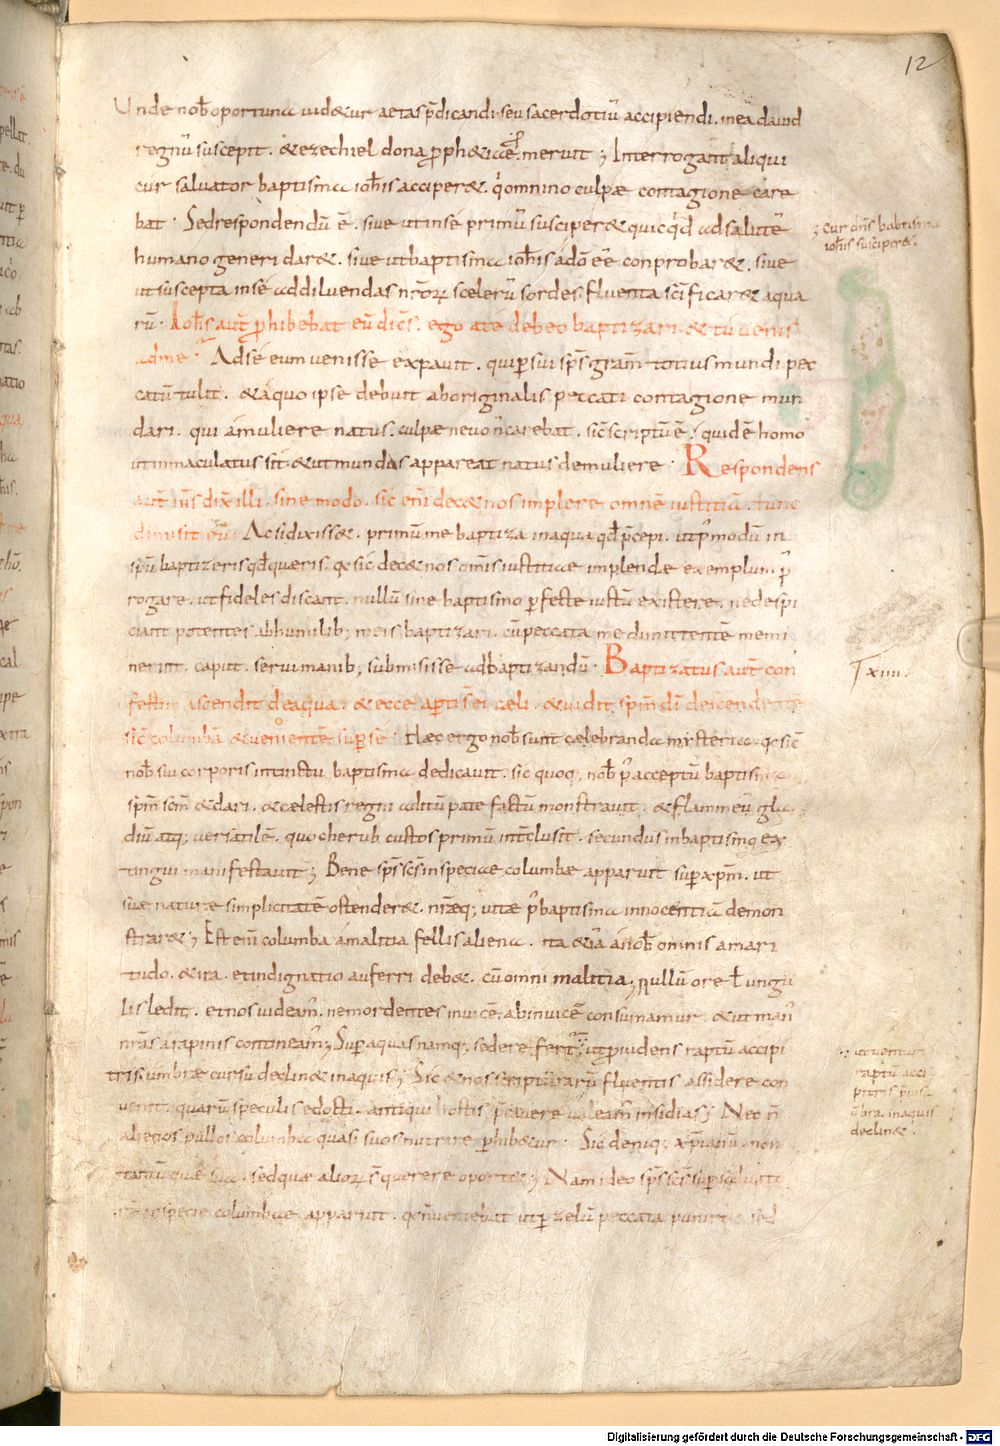 12
Unde nob̄ oportuna uid&ur aetas p̄dicandi seu sacerdotiū accipiendi. in ea dauid
regnū suscepit. & ezechiel dona proph&iae meruit; Interrogant aliqui
cur saluator baptisma ioh̄is acciper&. q̄ omnino culpae contagione care
bat. Sed respondendū ē. siue ut in se primū susciper& quicq̄d ad salutē
humano generi dar&. siue ut baptisma ioh̄is a dō eē conprobar&. siue
ut suscepta in se ad diluendas nr̄orum scelerū sordes. fluenta sc̄ificar& aqua
rū. Ioh̄s aut̄ prohibebat eū dic̄s. ego a te debeo baptizari. & tu uenis
ad me. Ad se eum uenisse expauit. qui per sui sp̄s gram̄ totius mundi pec
catū tulit. & a quo ipse debuit ab originalis peccati contagione mun
dari. qui a muliere natus. culpae neuo n̄ carebat. sic̄ scriptū ē. quid ē homo
ut inmaculatus sit. & ut mundus appareat natus de muliere. Respondens
aut̄ ih̄s dix̄ illi. sine modo. sic eni dec& nos implere omnē iustitiā. tunc
dimisit eū. Ac si dixiss&. primū me baptiza in aqua qd̄ p̄cepi. ut p̄modū in
sp̄u baptizeris qd̄ quaeris. qa sic dec& nos om̄is iustitiae implendae exemplum p̄
rogare. ut fideles discant. nullū sine baptismo perfecte iustū existere. ne despi
ciant potentes ab humilib; meis baptizari. cū peccata me dimittentē memi
nerint. caput serui manib; submisisse ad baptizandū. Baptizatus aut̄ con
festim ascendit de aqua. & ecce aperti s̄ ei caeli. & uidit sp̄m dī descendentē
sic̄ columbā & uenientē super se. Haec ergo nob̄ sunt caelebranda mysteria. qa sic̄
nob̄ sui corporis intinctu baptisma dedicauit. sic quoq; nob̄ p̄ acceptū baptisma
sp̄m sc̄m & dari. & caelestis regni aditū patefactū monstrauit. & flammeū gla
diū atq; uersatilē. quo cherub custos primū interclusit. secundus in baptismo ex
tingui manifestauit; Bene sp̄s sc̄s in specie columbae apparuit super xp̄m. ut
suae naturae simplicitatē ostender&. nr̄aeq; uitae p̄ baptisma innocentiā demon
strar&; Est eni columba a malitia fellis aliena. ita & iā a nob̄ omnis amari
tudo. & ira. et indignatio auferri deb&. cū omni malitia; Nullū ore t̄ ungu
lis ledit. et nos uideam̄. ne mordentes inuicē. ab inuicē consumamur. & ut man̄
nr̄as a rapinis contineam̄; Super aquas namq; sedere fert̄. ut prouidens raptū accipi
tris. umbrae cursu declin& in aquis; Sic & nos scripturarū fluentis assidere con
uenit. quarū speculis edocti. antiqui hostis p̄cauere ualeam̄ insidias; Nec n̄
alienos pullos columba quasi suos nutrire perhib&ur. Sic deniq; xp̄ianū. non
tantū quae sua. sed quae aliorum s̄ querere oport&; Nam ideo sp̄s sc̄s super saluato
rē in specie columbae apparuit. qa n̄ ueniebat ut per zelū peccata puniret sed
; cur dn̄s babtisma
ioh̄is susciper&.
xiiii.
ut uenturi
raptū acci
pitris p̄uisa
ūbra. in aquis
declin&.
Digitalisierung gefördert durch die Deutsche Forschungsgemeinschaft - DFG